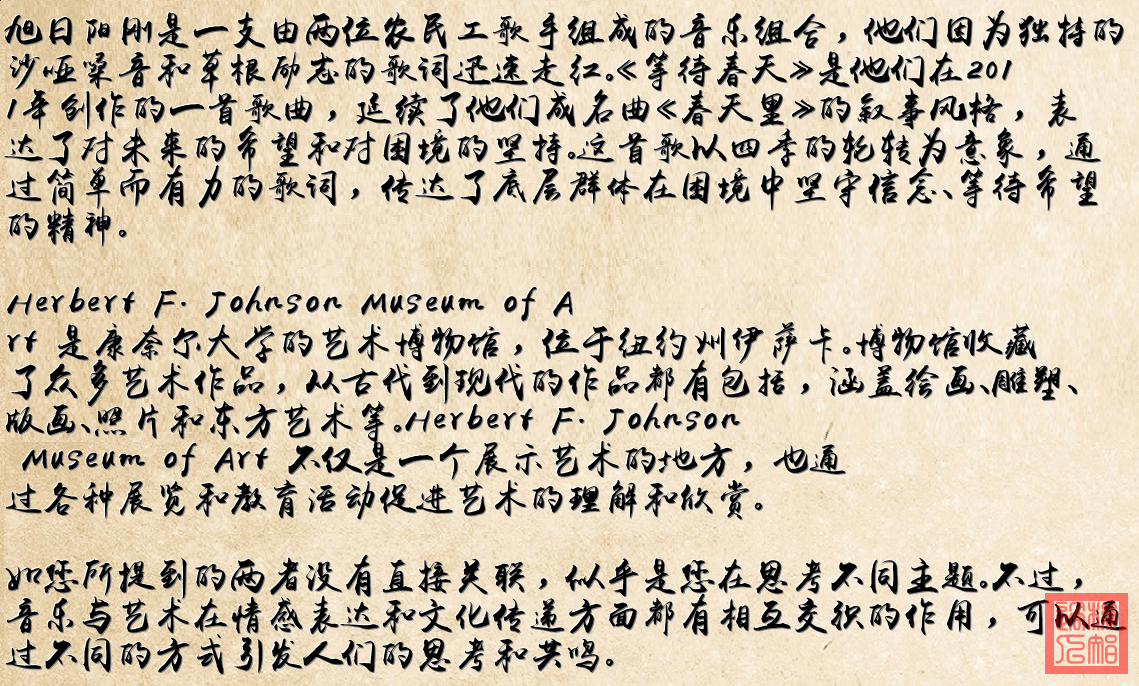 旭日阳刚是一支由两位农民工歌手组成的音乐组合，他们因为独特的
沙哑嗓音和草根励志的歌词迅速走红。《等待春天》是他们在201
1年创作的一首歌曲，延续了他们成名曲《春天里》的叙事风格，表
达了对未来的希望和对困境的坚持。这首歌以四季的轮转为意象，通
过简单而有力的歌词，传达了底层群体在困境中坚守信念、等待希望
的精神。
Herbert F. Johnson Museum of A
rt 是康奈尔大学的艺术博物馆，位于纽约州伊萨卡。博物馆收藏
了众多艺术作品，从古代到现代的作品都有包括，涵盖绘画、雕塑、
版画、照片和东方艺术等。Herbert F. Johnson
Museum of Art 不仅是一个展示艺术的地方，也通
过各种展览和教育活动促进艺术的理解和欣赏。
如您所提到的两者没有直接关联，似乎是您在思考不同主题。不过，
音乐与艺术在情感表达和文化传递方面都有相互交织的作用，可以通
过不同的方式引发人们的思考和共鸣。